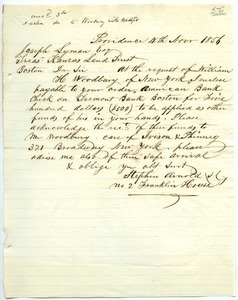 Providence 4th Novr 1856
Joseph Lyman Esq
Treasr Kansas Land Trust
Boston Dr Sir At the request of William
H Woodbury of New York I enclose
payable to your order, American Bank
Check on Tremont Bank Boston for Five
hundred dollars ($500) to be applied as other
funds of his in your hands. Please
acknowledge the rect of these funds to
Mr Woodbury care of Ivison & Phinney
321 Broadway New York. please
advise me also of their safe arrival
& oblige yr obt Servt
Stephen Arnold
No 2 Franklin House